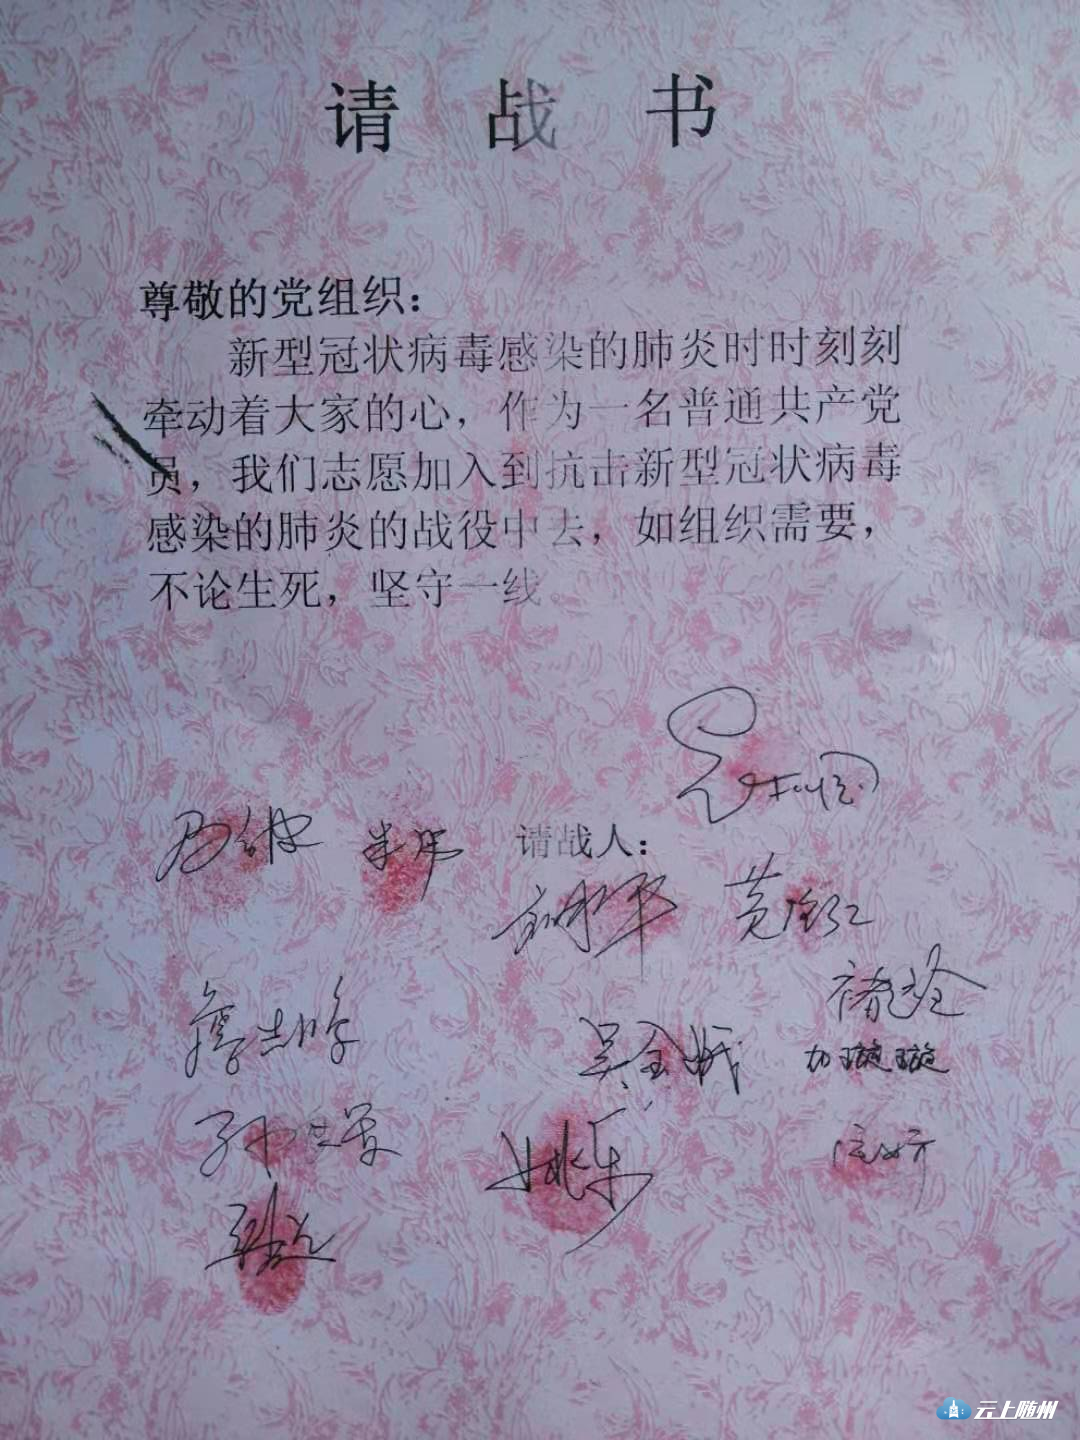 请战书
尊敬的党组织：
新型冠状病毒感染的肺炎时时刻刻
牵动着大家的心，作为一名普通共产党
员，我们志愿加入到抗击新型冠状病毒
感染的肺炎的战役中去，如组织需要，
不论生死，坚守一线。
请战人：
黄
吴金娥
璇璇
姚乐
云上随州